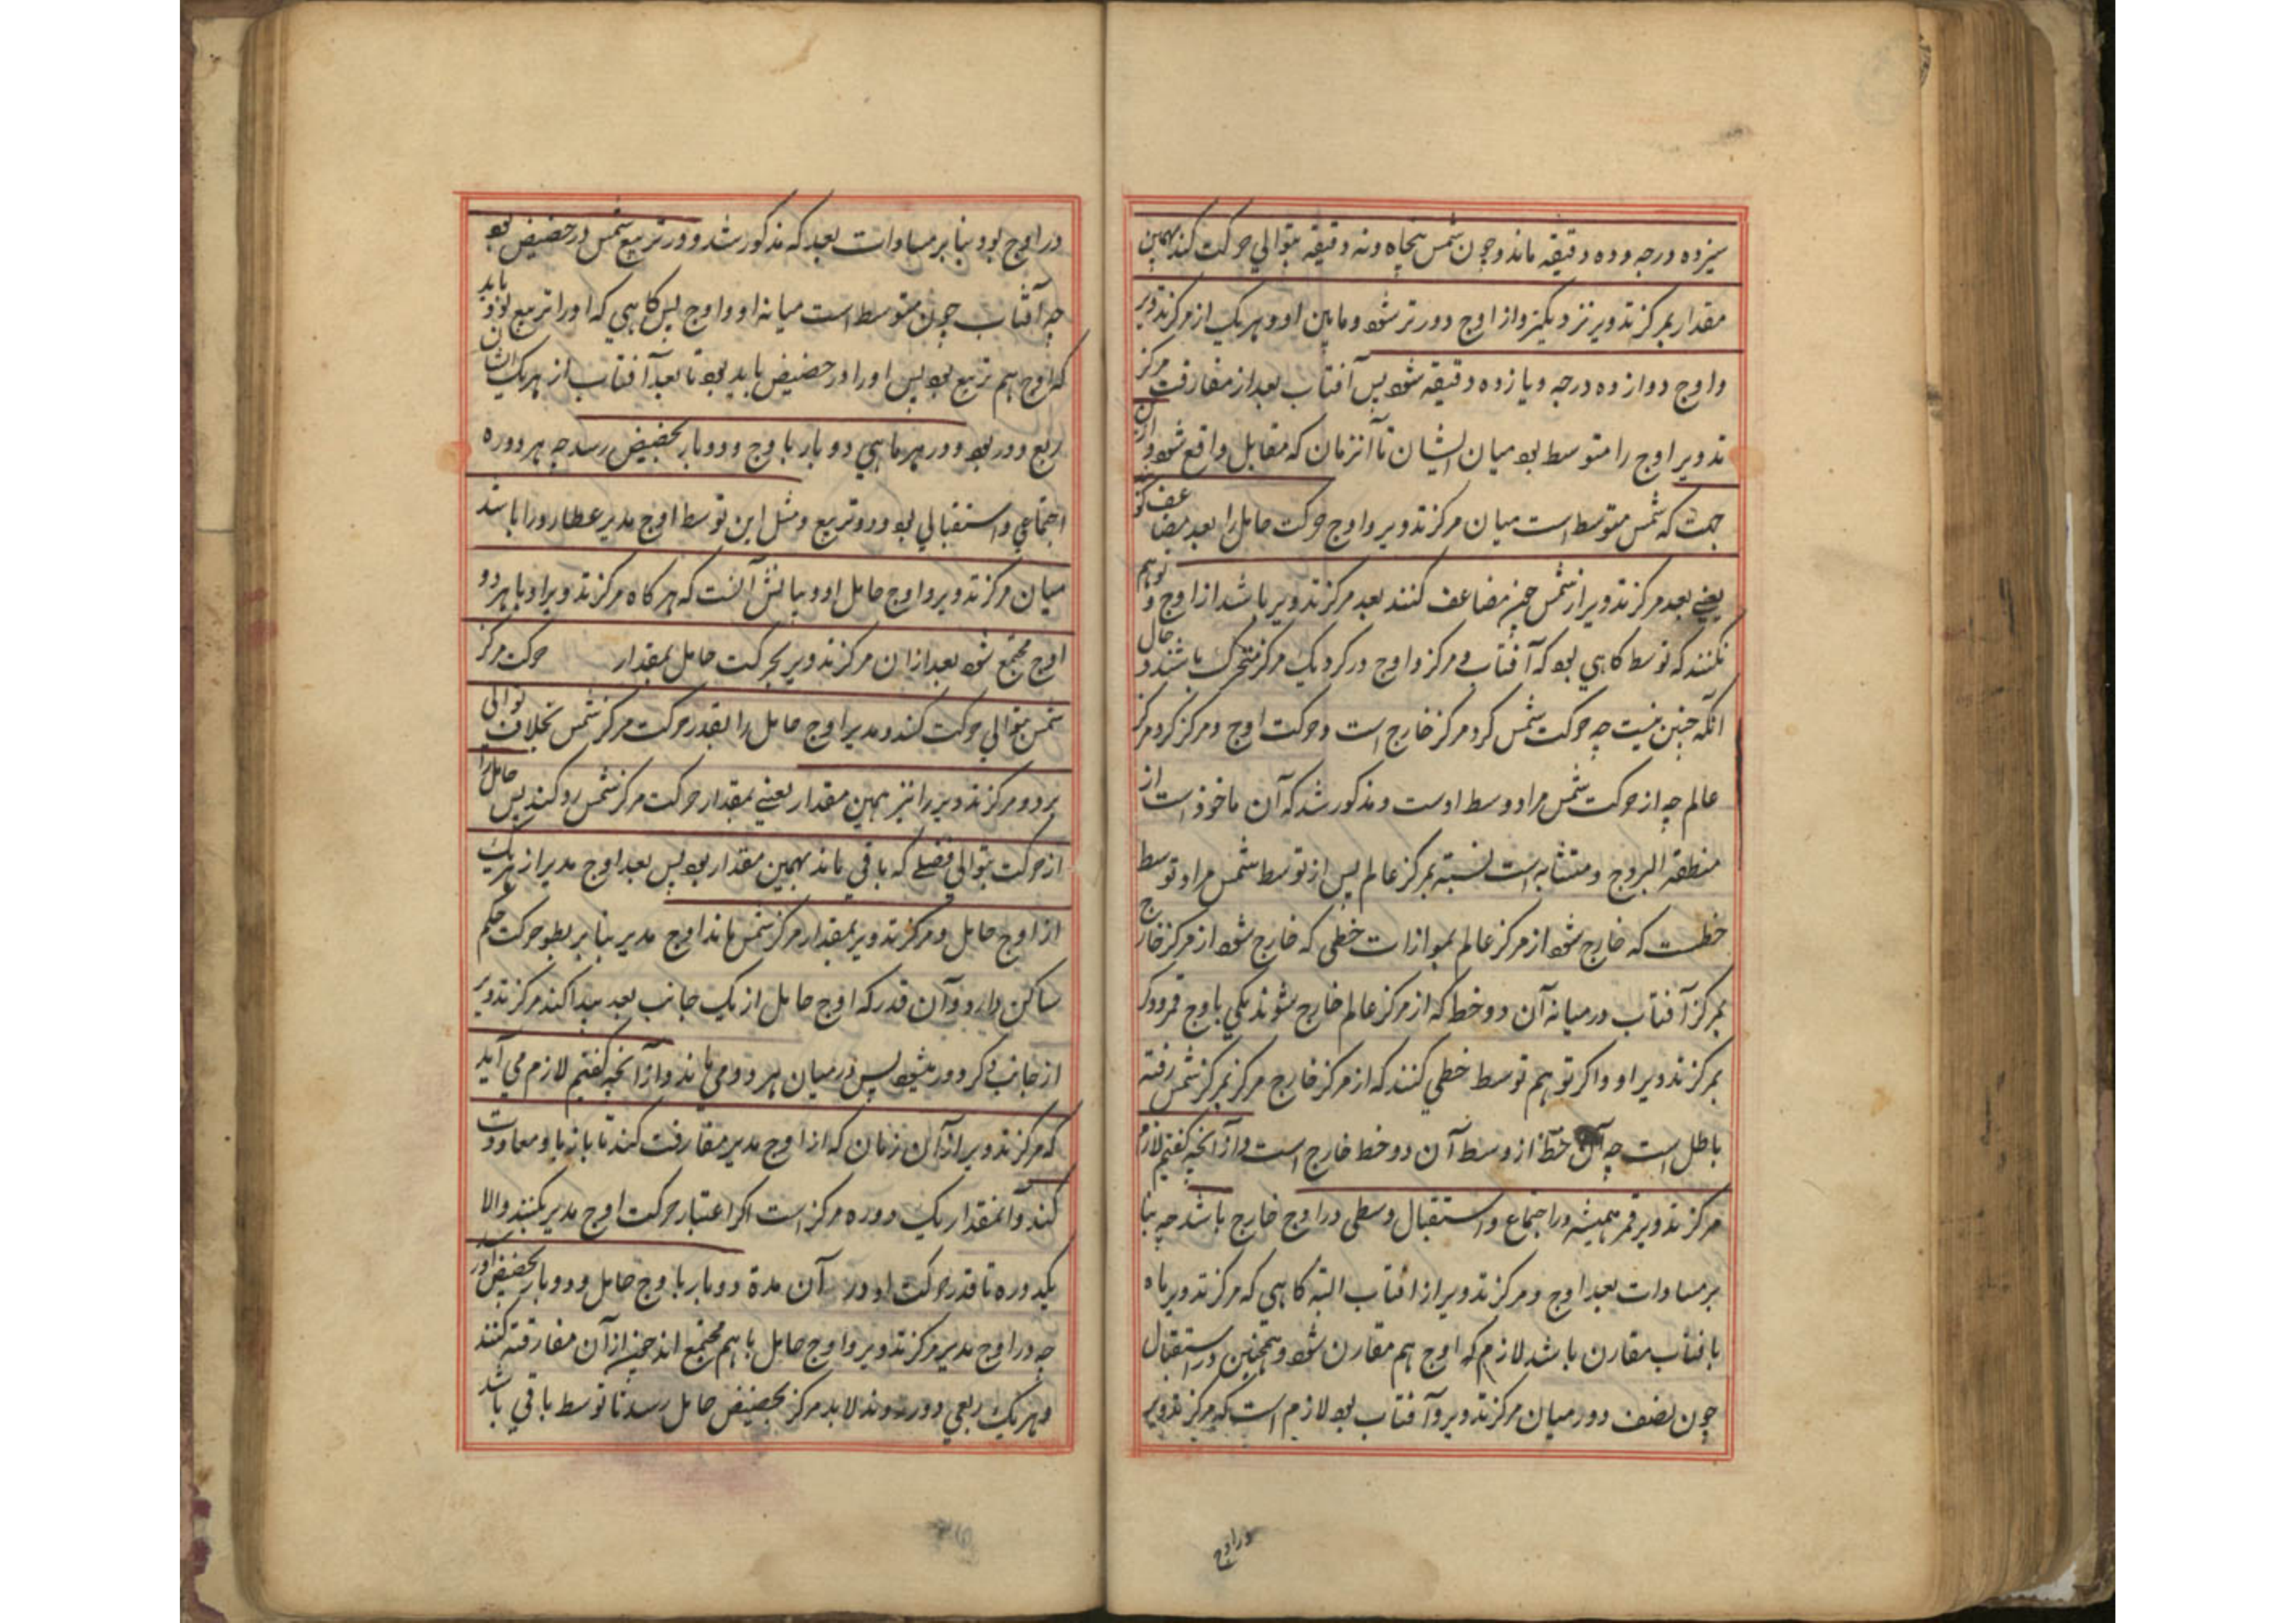 سیزده درجه و ده دقیقه ماند و چون شمس پنجاه و نه دقیقه بتوالی حرکت کند بهمین
مقدار بمرکز تدویر نزدیکتر و از اوج دورتر شود و مابین او و هر یک از مرکز تدویر
و اوج دوازده درجه و یازده دقیقه شود پس آفتاب بعد از مفارقت مرکز
تدویر اوج را متوسط بود میان ایشان تا آنزمان که مقابل واقع شود و ازین
جهت که شمس متوسط است میان مرکز تدویر و اوج حرکت حامل را بعد مضاعف
یعنی بعد مرکز تدویر از شمس چون مضاعف کنند بعد مرکز تدویر باشد از اوج و توهم
نکنند که توسط گاهی بود که آفتاب و مرکز و اوج در گرد یک مرکز متحرک باشند و حال
آنکه چنین نیست چه حرکت شمس گرد مرکز خارج است و حرکت اوج و مرکز گرد مرکز
عالم چه از حرکت شمس مراد وسط اوست و مذکور شد که آن ماخوذ است از
منطقة البروج و متشابه است نسبته بمرکز عالم پس از توسط شمس مراد توسط
خطیست که خارج شود از مرکز عالم بموازات خطی که خارج شود از مرکز خارج
بمرکز آفتاب در میانه آن دو خط که از مرکز عالم خارج شوند یکی باوج قمر و دیگر
بمرکز تدویر او و اگر توهم توسط خطی کنند که از مرکز خارج مرکز بمرکز شمس رفته
باطل است چه آن خط از وسط آن دو خط خارج است و از آنچه گفتیم لازم
مرکز تدویر قمر همیشه در اجتماع و استقبال وسطی در اوج خارج باشد چه بنا
بر مساوات بعد اوج و مرکز تدویر از آفتاب البته گاهی که مرکز تدویر ماه
بافتاب مقارن باشد لازم که اوج هم مقارن شود و همچنین در استقبال
چون نصف دور میان مرکز تدویر و آفتاب بود لازم است که مرکز تدویر
در اوج
در اوج بود بنابر مساوات بعد که مذکور شد و در تربیع شمس در حضیض بود
چه آفتاب چون متوسط است میانه او و اوج پس گاهی که او را تربیع بود باید
که اوج هم تربیع بود پس او را در حضیض باید بود تا بعد آفتاب از هر یک ایشان
ربع دور بود و در هر ماهی دو بار باوج و دو بار بحضیض رسد چه هر دوره
اجتماعی و استقبالی بود و دو تربیع و مثل این توسط اوج مدیر عطارد را باشد
میان مرکز تدویر و اوج حامل او و بیانش آنست که هرگاه مرکز تدویر او با هر دو
اوج مجتمع شود بعد از ان مرکز تدویر بحرکت حامل بمقدار حرکت مرکز
شمس بتوالی حرکت کند و مدیر اوج حامل را بقدر حرکت مرکز شمس بخلاف توالی
برد و مرکز تدویر را نیز بهمین مقدار یعنی بمقدار حرکت مرکز شمس رد کند پس حامل را
از حرکت بتوالی فضلی که باقی ماند بهمین مقدار بود پس بعد اوج مدیر از هر یک
از اوج حامل و مرکز تدویر بمقدار مرکز شمس ماند اوج مدیر بنابر بطوء حرکت حکم
ساکن دارد و آن قدر که اوج حامل از یک جانب بعد پیدا کند مرکز تدویر
از جانب دگر دور میشود پس در میان هر دو می ماند و از آنچه گفتیم لازم می آید
که مرکز تدویر از آن زمان که از اوج مدیر مفارقت کند تا باز باو معاودت
کند و آنمقدار یک دوره مرکز است اگر اعتبار حرکت اوج مدیر نکنند و الا
یکدوره تا قدر حرکت او در آن مدة دو بار باوج حامل و دو بار بحضیض او رسد
چه در اوج مدیر مرکز تدویر و اوج حامل با هم مجتمع اند چون از آن مفارقت کنند
و هر یک ربعی دور روند لابد مرکز بحضیض حامل رسد تا توسط باقی باشد